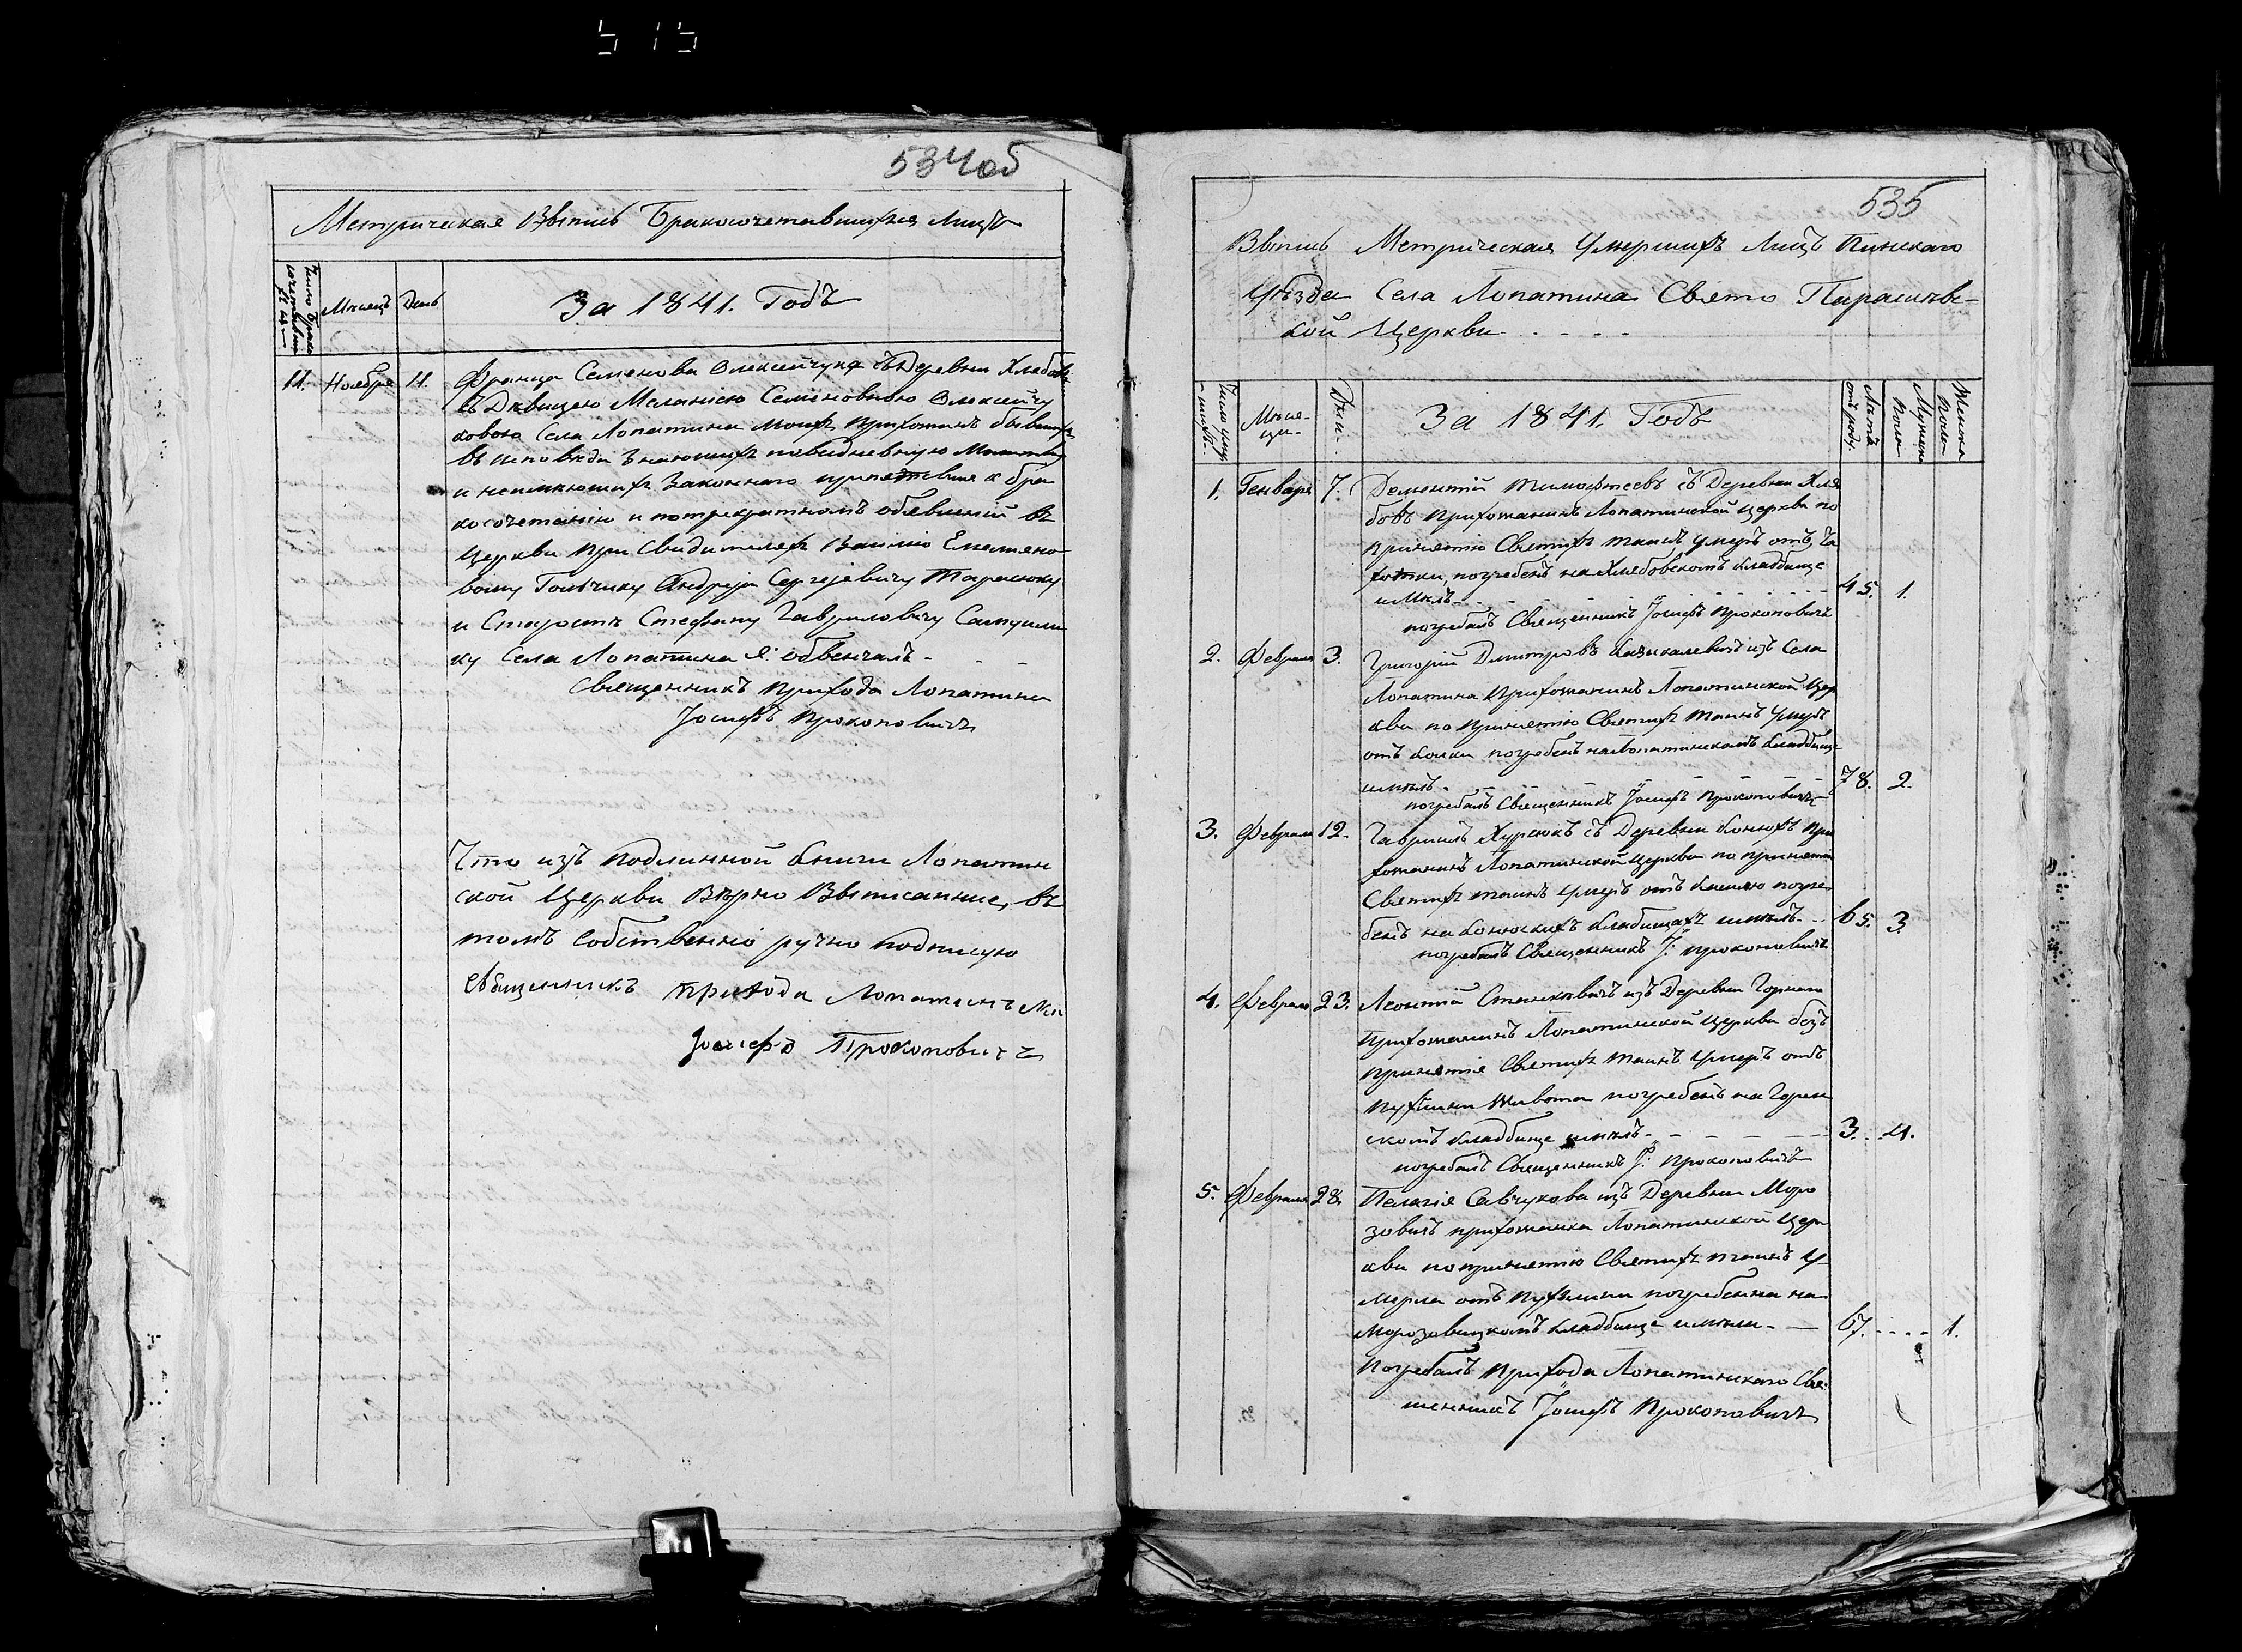 534об
Метрическая Выпись Бракосочетавшихся Лицъ
Число Брако
сочетавши
хся
Месяцъ
День
За 1841. Годъ
11. Ноебря 11. Франца Семенова Олексейчука съ Деревни Хлебовъ
съ Девицею Меланіею Семеновною Олексейчу
ковою Села Лопатина Моихъ Прихожанъ бывшихъ
въ исповеди знающихъ повседневную Молитву
и неимеющихъ Законнаго препетствия к бра
косочетанію и потрекратномъ обявлений въ
Церкви при Свидителехъ Василію Емельяно
вому Гольчику Андреја Сергејевичу Тарасюку
и Старостъ Стефану Гавриловичу Самуили
ку Села Лопатина Я: обвенчалъ - - -
Священникъ Прихода Лопатина
Јосифъ Прокоповичъ
Что изъ Подлинной Книги Лопатин
ской Церкви Верно Выписанние, въ
томъ собственніо ручно подписую
Священникъ Прихода Лопатинъ
Јосифъ Прокоповичъ
535
Выпись Метрическая Умершихъ Лицъ Пинскаго
Уѣзда Села Лопатина Свято Параскев-
кой Церкви - - - -
Число умер
шихъ.
Меся-
ци.
Дни.
За 1841. Годъ
Летъ
отъ роду.
Мужеска
Полы
Женска
Полы
1. Генваря 7. Дементій Тимофеевъ съ Деревни Хле
бовъ Прихожанинъ Лопатинской Церкви по
принетію Светихъ таинъ умеръ отъ ча
хотки, погребенъ на Хлебовскомъ Кладбище
имелъ - - - 45. 1.
погребалъ Священникъ Јосифъ Прокоповичъ
2. Февраля 3. Григорій Дмитровъ изъ Села
Лопатина Прихожанинъ Лопатинской Цер
кви по Принетію Светихъ таинъ умеръ
отъ Колки погребенъ на Лопатинскомъ Кладбище
имелъ - - - 78. 2.
погребалъ Священникъ Јосифъ Прокоповичъ
3. Февраля 12. Гаврiилъ Хурсюкъ съ Деревни Конюхъ При
хожанинъ Лопатинской Церкви по принетію
Светихъ таинъ умеръ отъ Кашлю погре
бенъ на Конюскихъ Кладбищахъ имелъ - - 65. 3.
погребалъ Священникъ Ј: Прокоповичъ
4. Февраля 23. Леонтій Станкевичъ изъ Деревни Горкина
Прихожанинъ Лопатинской Церкви безъ
Принятіе Светихъ таинъ умеръ отъ
Пухлини Живота погребенъ на Горен
скомъ Кладбище имелъ - - - 3. 4.
погребалъ Священникъ Ј: Прокоповичъ
5. Февраля 28. Пелагія Савчукова изъ Деревни Моро
зовичъ прихожанка Лопатинской Цер
кви по принетію Светихъ таинъ у
мерла отъ пухлини погребенна на
Морозовицкомъ Кладбище имели - - 67. - - - - 1.
Погребалъ Прихода Лопатинскаго Свя
щенникъ Јосифъ Прокоповичъ